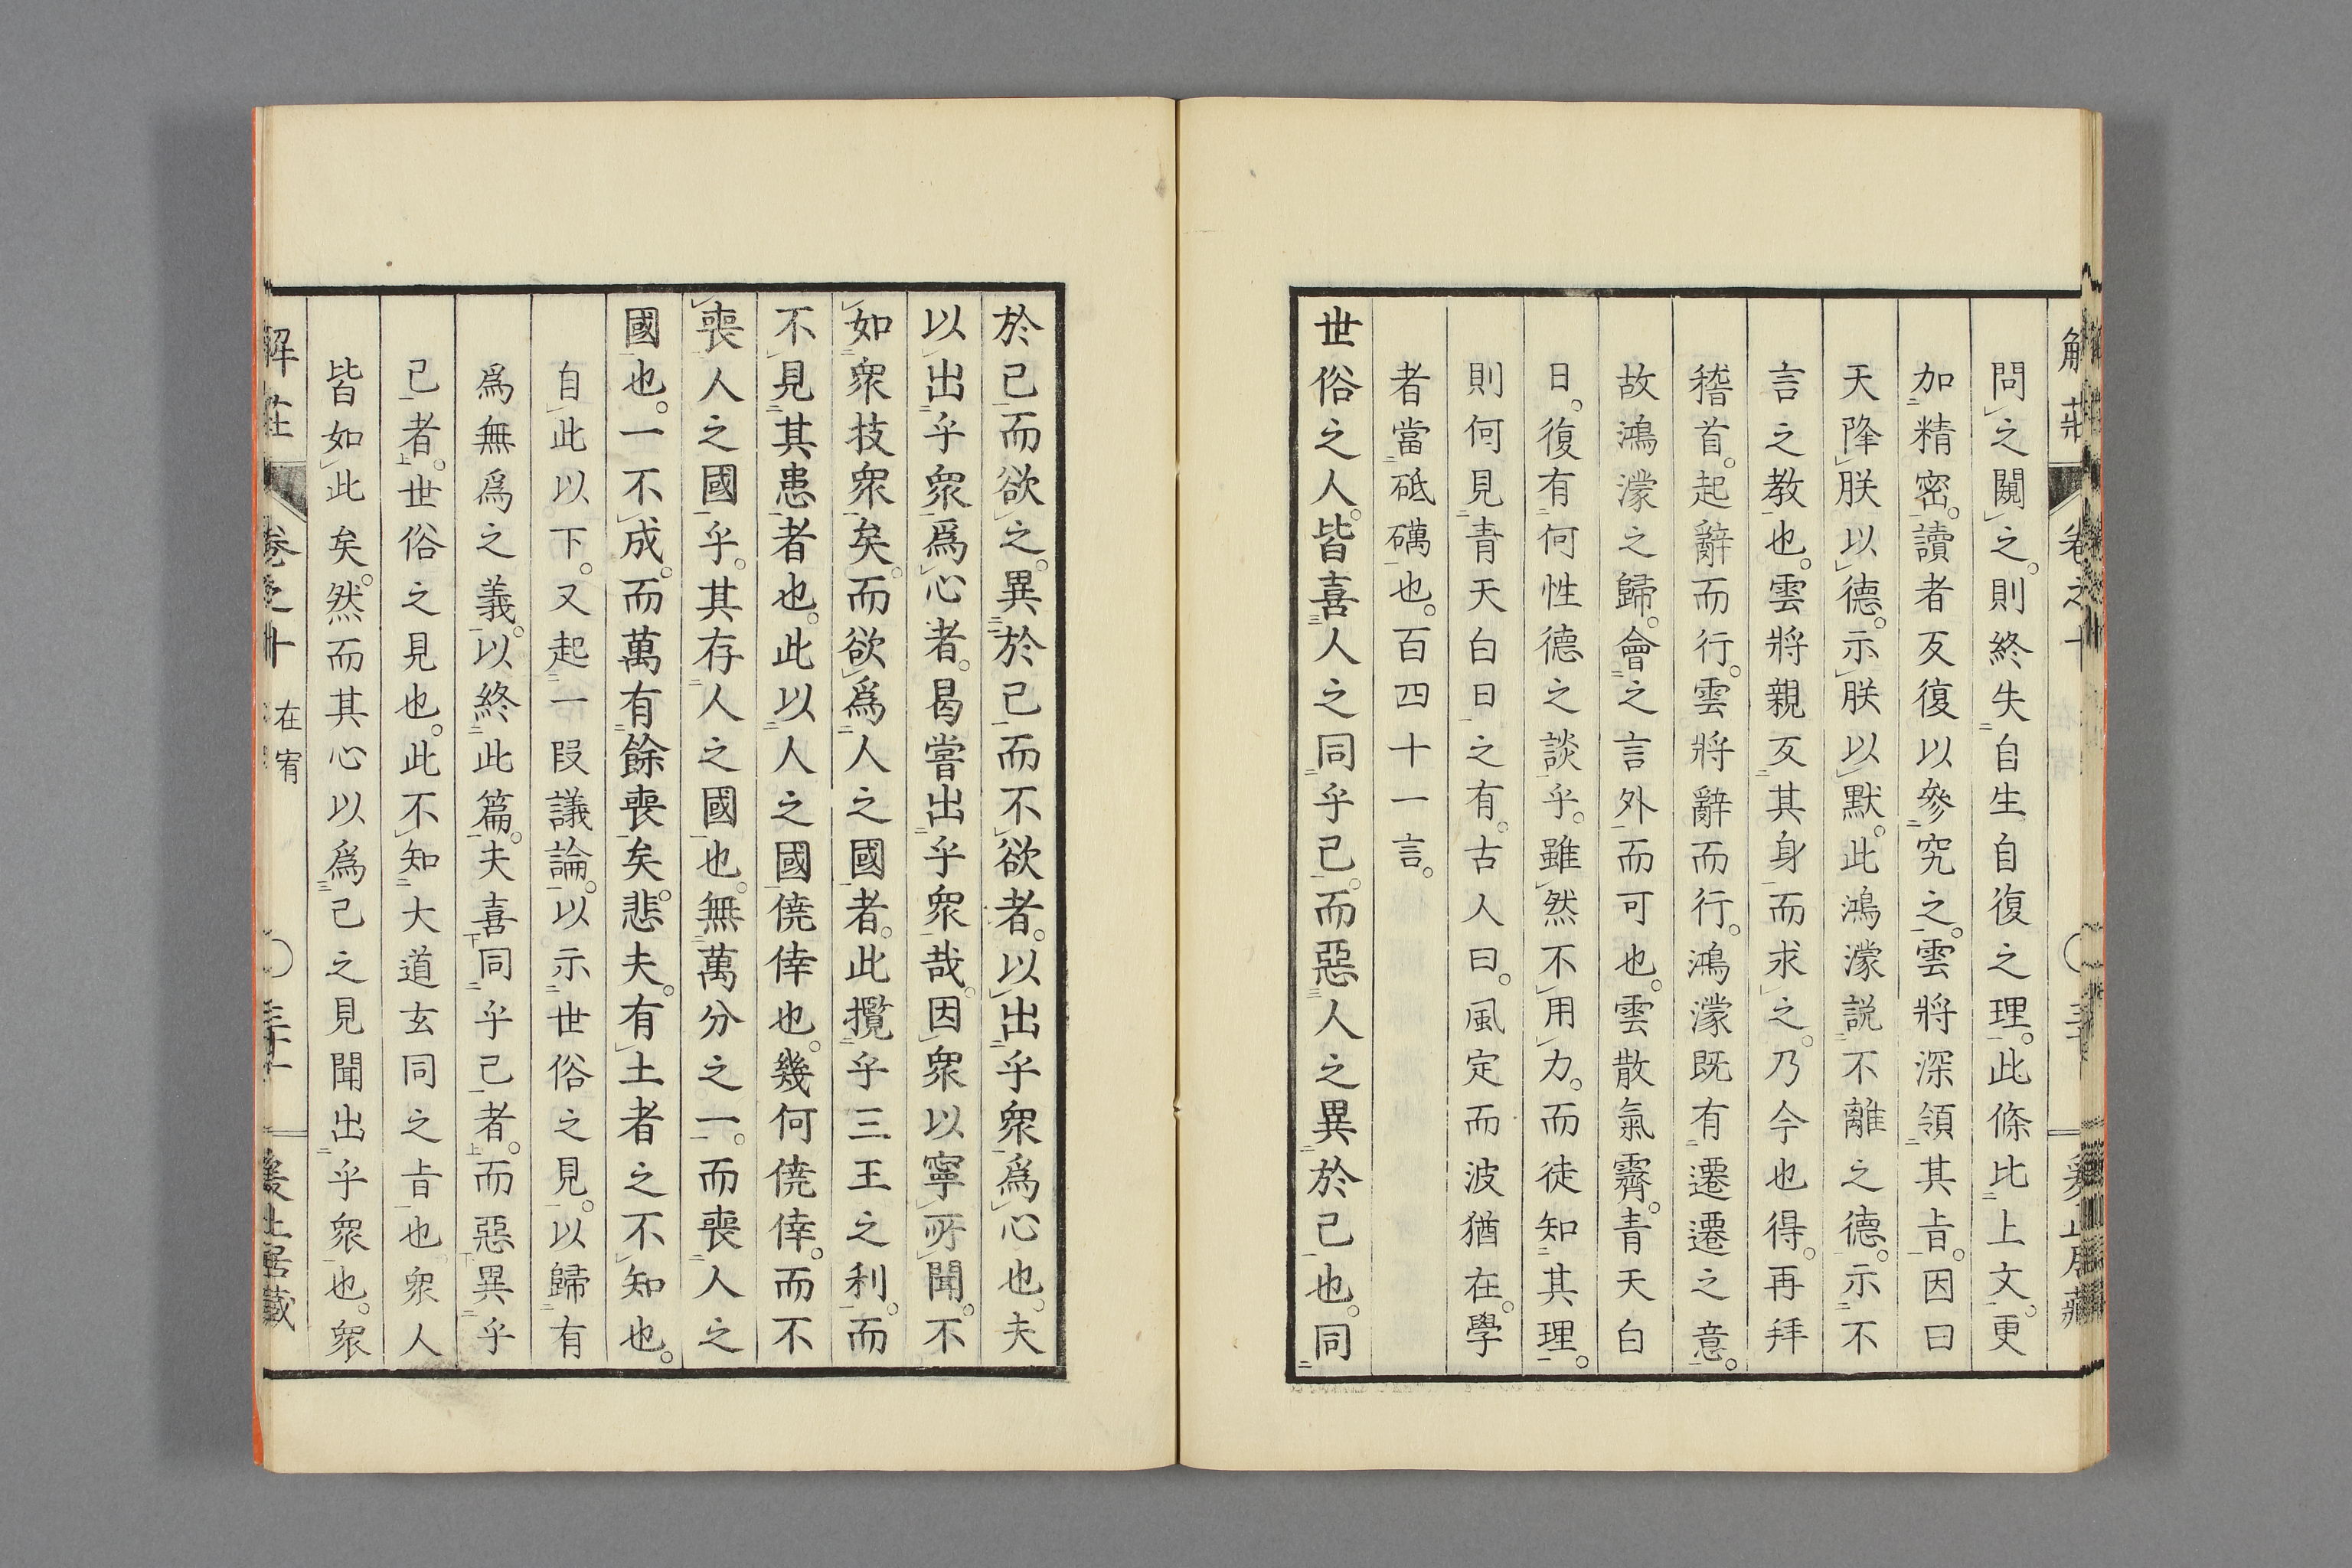 問之闚之。則終失自生自復之理。此條比上文。更
加精密。讀者反復以參究之。雲將深領其旨。因曰
天降朕以德。示朕以默。此鴻濛説不離之德。示不
言之教也。雲將親反其身而求之。乃今也得。再拜
稽首。起辭而行。雲將辭而行。鴻濛既有遷遷之意。
故鴻濛之歸。會之言外而可也。雲散氣霽。青天白
日。復有何性德之談乎。雖然不用力。而徒知其理。
則何見青天白日之有。古人曰。風定而波猶在。學
者當砥礪也。百四十一言。
世俗之人。皆喜人之同乎己。而惡人之異於己也。同
於己而欲之。異於己而不欲者。以出乎衆爲心也。夫
以出乎衆爲心者。曷嘗出乎衆哉。因衆以寧所聞。不
如衆技衆矣。而欲爲人之國者。此攬乎三王之利。而
不見其患者也。此以人之國僥倖也。幾何僥倖。而不
喪人之國乎。其存人之國也。無萬分之一。而喪人之
國也。一不成。而萬有餘喪矣。悲夫。有土者之不知也。
自此以下。又起一段議論。以示世俗之見。以歸有
爲無爲之義。以終此篇。夫喜同乎己者。而惡異乎
己者。世俗之見也。此不知大道玄同之旨也衆人
皆如此矣。然而其心以爲己之見聞出乎衆也。衆
解莊 卷之十 在宥